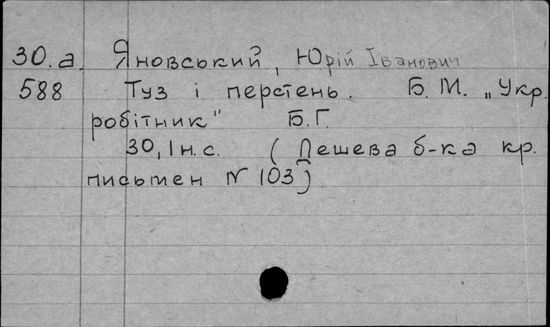 30.а. Яновський, Юрій Іванович
588 Туз і перстень. Б.М. „Укр.
робітник" Б.Г.
30, 1н.с. (Дешева б-ка кр.
письмен N 103)